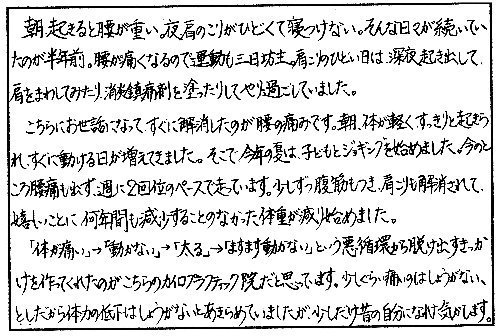 朝起きると腰が重い。夜肩のこりがひどくて寝つけない。そんな日々が続いてい
たのが半年前。腰が痛くなるので運動も三日坊主。肩こりのひどい日は、深夜起き出して、
肩をまわしてみたり、消炎鎮痛剤を塗ったりしてやり過ごしていました。
こちらにお世話になって、すぐに解消したのが腰の痛みです。朝、体が軽くすっきりと起きら
れ、すぐに動ける日が増えてきました。そこで今年の夏は、子どもとジョギングを始めました。今のと
ころ腰痛も出ず、週に2回位のペースで走っています。少しずつ腹筋もつき、肩こりも解消されて、
嬉しいことに何年間も減少することのなかった体重が減り始めました。
「体が痛い」→「動かない」→「太る」→「ますます動かない」という悪循環から脱け出すきっか
けを作ってくれたのがこちらのカイロプラクティック院だと思っています。少しぐらい痛いのはしょうがない、
としだから体力の低下はしょうがないとあきらめていましたが、少しだけ昔の自分になれた気がします。